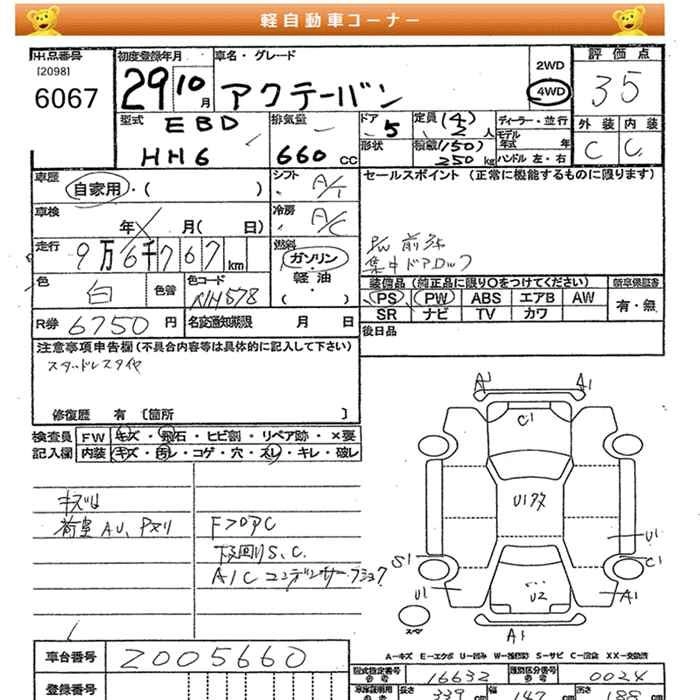 軽自動車コーナー
出品番号
[2098]
6067
初度登録年月
29 10 月
車名・グレード
アクテーバン
2WD
4WD
評価点
35
型式
EBD
HH6
排気量
660 cc
ドア
5
形状
定員 (4)
2 人
積載 (150)
250 kg
ディーラー・並行
モデル年式 年
ハンドル 左・右
外装 内装
C C
車歴
自家用・( )
シフト
A/T
セールスポイント (正常に機能するものに限ります)
P/W 前
集中ドアロック
車検
年 月( 日)
冷房
A/C
走行
9万6千767 km
燃料
ガソリン・
軽油・
( )
色
白
色替
色コード
NH578
装備品 (純正品に限り○をつけてください)
新車保証書
PS PW ABS エアB AW
SR ナビ TV カワ
有・無
R券 6750 円
名変通知期限 月 日
後日品
注意事項申告欄 (不具合内容等は具体的に記入して下さい)
スタッドレスタイヤ
修復歴 有 [箇所 ]
検査員
記入欄
FW キズ・飛石・ヒビ割・リペア跡・×要
内装 キズ・汚レ・コゲ・穴・スレ・キレ・破レ
キズ
荷室 AU、
FフロアC
下廻りS、C、
A/Cコンデンサー
A1 A1
C1
U1
U1
S1
C1
U1
U2
A1
スペア
A1
A-キズ E-エクボ U-凹み W-(波積跡) S-サビ C-腐食 XX-交換済
車台番号
2005660
登録番号
型式指定番号
参考
16632
類別区分番号
参考
0024
長さ
339 cm
幅
147 cm
高さ
188 cm